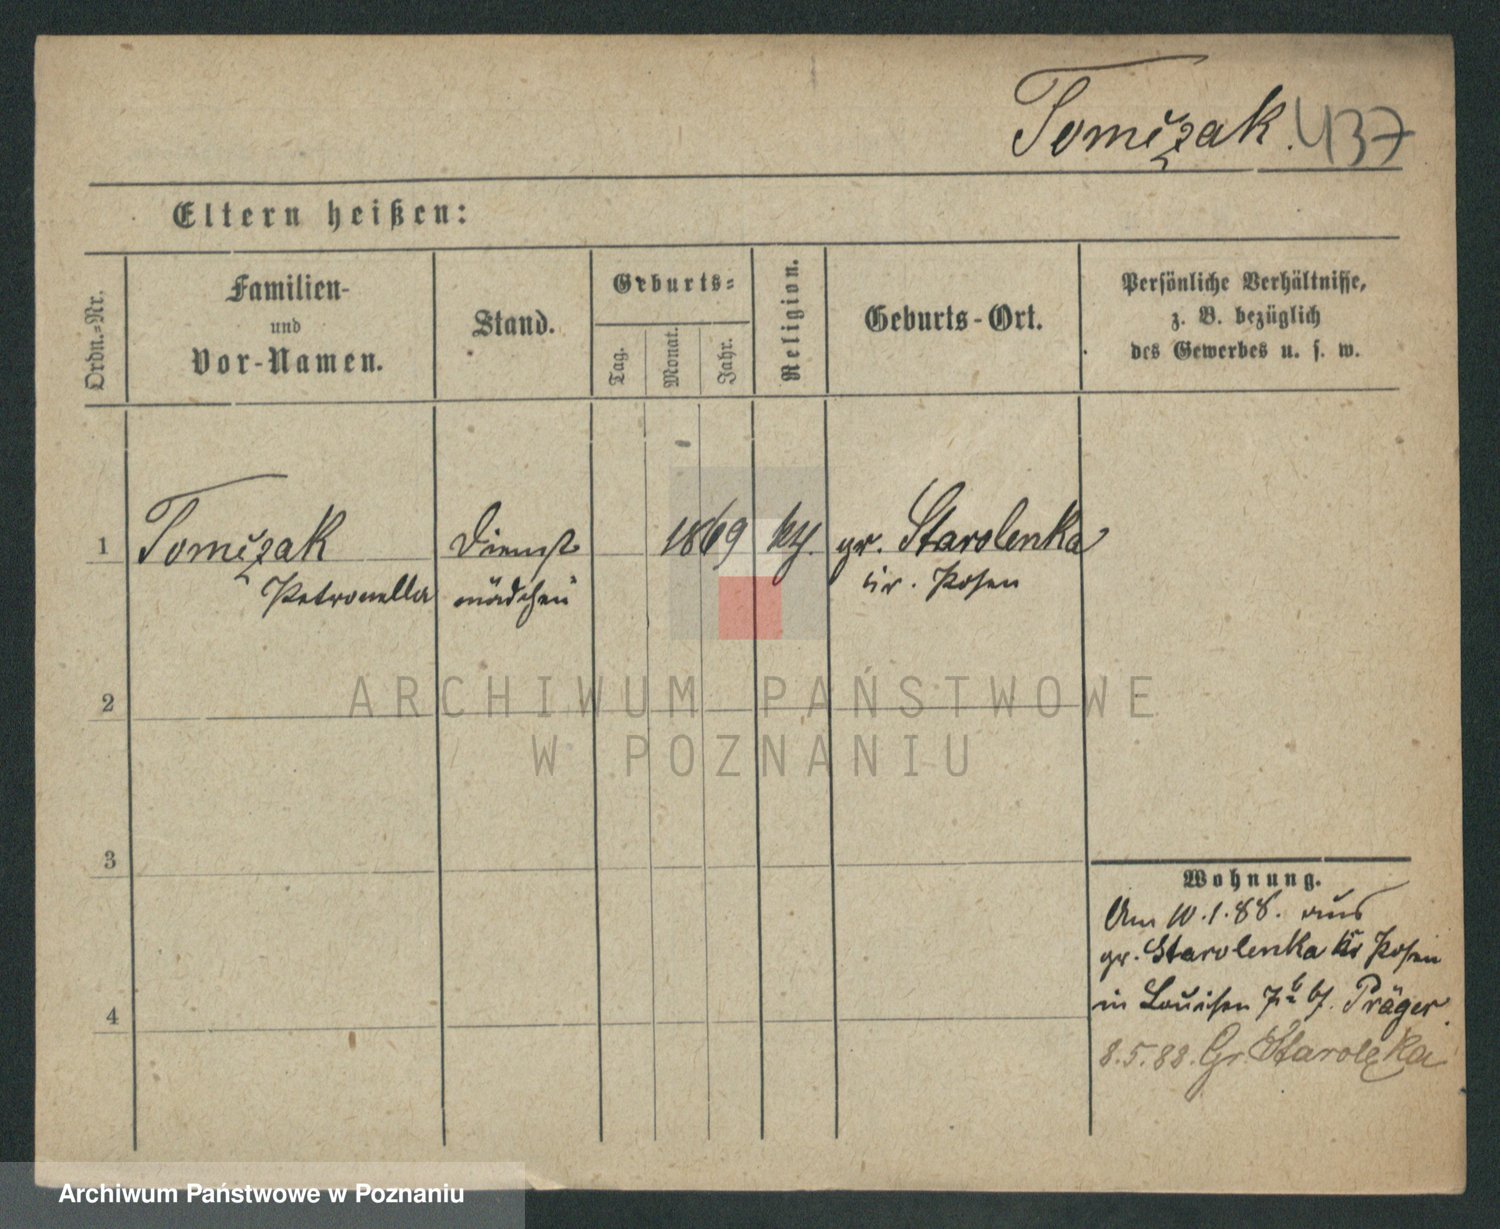 Tomczak. 437
Eltern heißen:
Ordn.-Nr.
Familien-
und
Vor-Namen.
Stand.
Geburts-
Tag.
Monat.
Jahr.
Religion.
Geburts-Ort.
Persönliche Verhältnisse,
z. B. bezüglich
des Gewerbes u. s. w.
1 Tomczak Dienst 1869 gr. Starolenka
Petronella mädchen Posen
2
ARCHIWUM PAŃSTWOWE
W POZNANIU
3
Wohnung.
Am 10.1.88. aus
gr. Starolenka Kr Posen
in Louisen Präger.
4
8.5.88. Gr. Starolęka
Archiwum Państwowe w Poznaniu